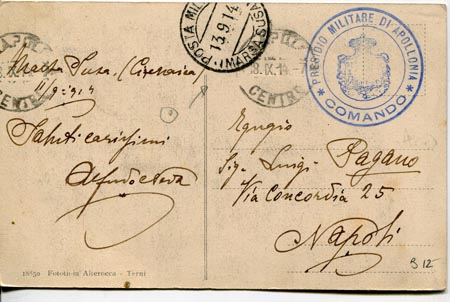 POSTA MILITARE
13.9.14
(MARSA SUSA)
NAPOLI
CENTRO
18.IX.14
PRESIDIO MILITARE DI APOLLONIA
* COMANDO *
Marsa Susa. (Cirenaica)
11/9.914
Saluti carissimi
Egregio
Sig. Luigi Pagano
Via Concordia 25
Napoli
S 12
18650 Fototipia Alterocca - Terni